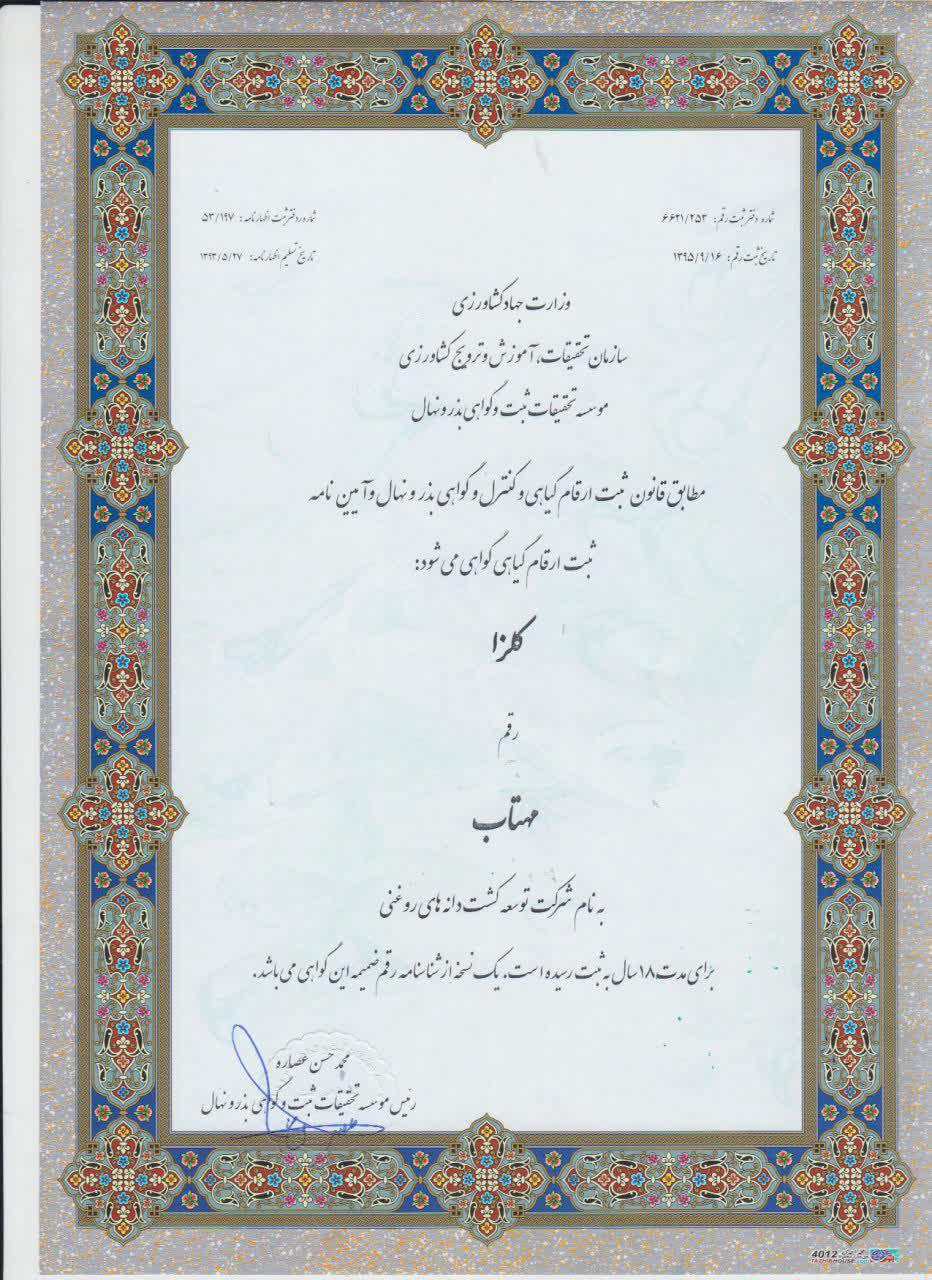 شماره دفتر ثبت رقم: ۶۶۲۱/۲۵۳
تاریخ ثبت رقم: ۱۳۹۵/۹/۱۶
شماره دفتر ثبت اظهارنامه: ۵۳/۱۹۷
تاریخ تسلیم اظهارنامه: ۱۳۹۳/۵/۲۷
وزارت جهاد کشاورزی
سازمان تحقیقات، آموزش و ترویج کشاورزی
موسسه تحقیقات ثبت و گواهی بذر و نهال
مطابق قانون ثبت ارقام گیاهی و کنترل و گواهی بذر و نهال و آیین نامه
ثبت ارقام گیاهی گواهی می شود:
کلزا
رقم
مهتاب
به نام شرکت توسعه کشت دانه های روغنی
برای مدت ۱۸ سال به ثبت رسیده است. یک نسخه از شناسنامه رقم ضمیمه این گواهی می باشد.
محمد حسن عصاره
رئیس موسسه تحقیقات ثبت و گواهی بذر و نهال
4012
TAZHIBHOUSE.com